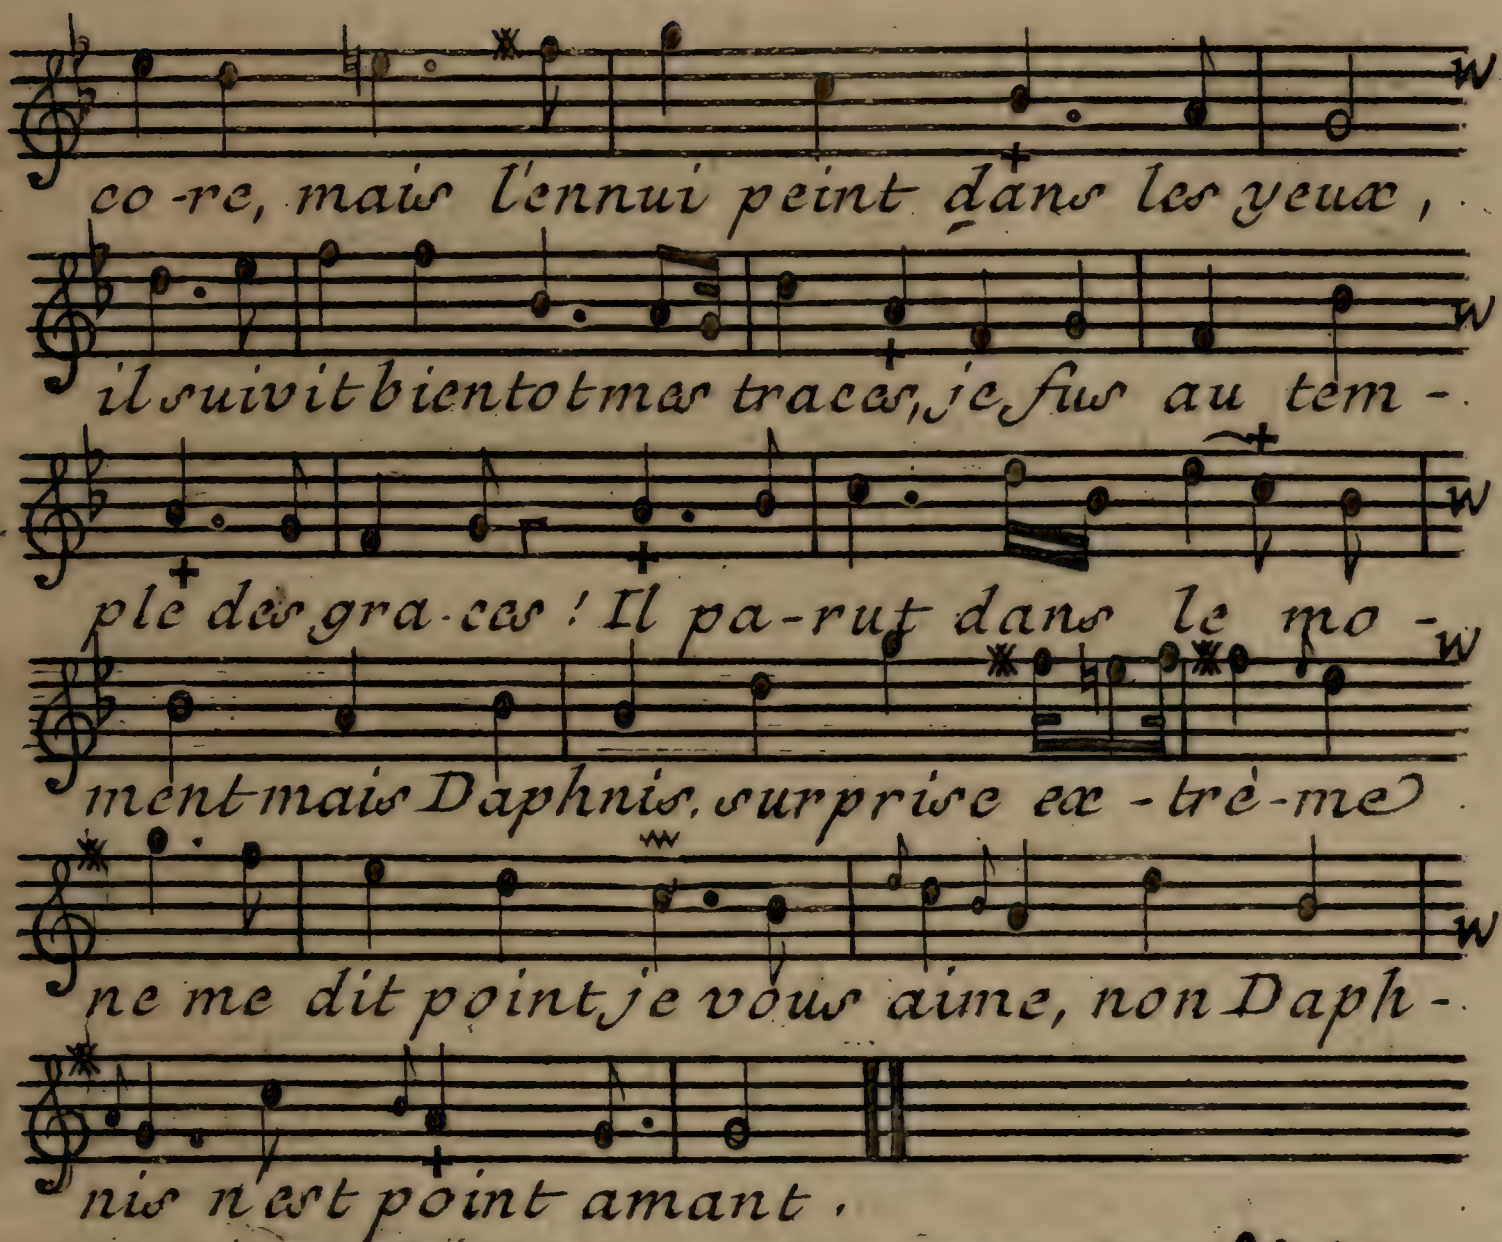 co-re, mais l'ennui peint dans les yeux,
il suivit bientot mes traces, je fus au tem-
ple des gra-ces! Il pa-rut dans le mo-
ment mais Daphnis. surprise ex-trè-me
ne me dit point je vous aime, non Daph-
nis n'est point amant.